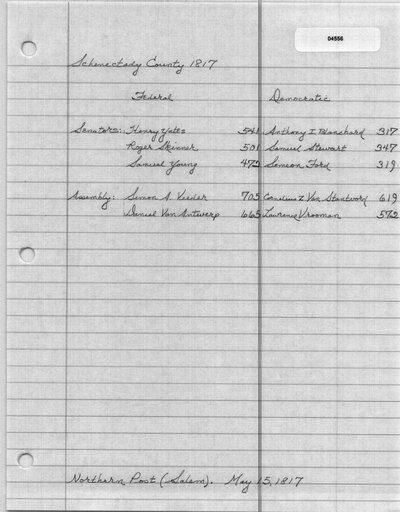 04556
Schenectady County 1817
Federal Democratic
Senators: Henry Yates 541 Anthony I. Blanchard 317
Roger Skinner 501 Samuel Stewart 347
Samuel Young 472 Simeon Ford 319
Assembly: Simon A. Veeder 705 Cornelius Z. Van Santvord 619
Daniel Van Antwerp 665 Laurence Vrooman 572
Northern Post (Salem). May 15, 1817